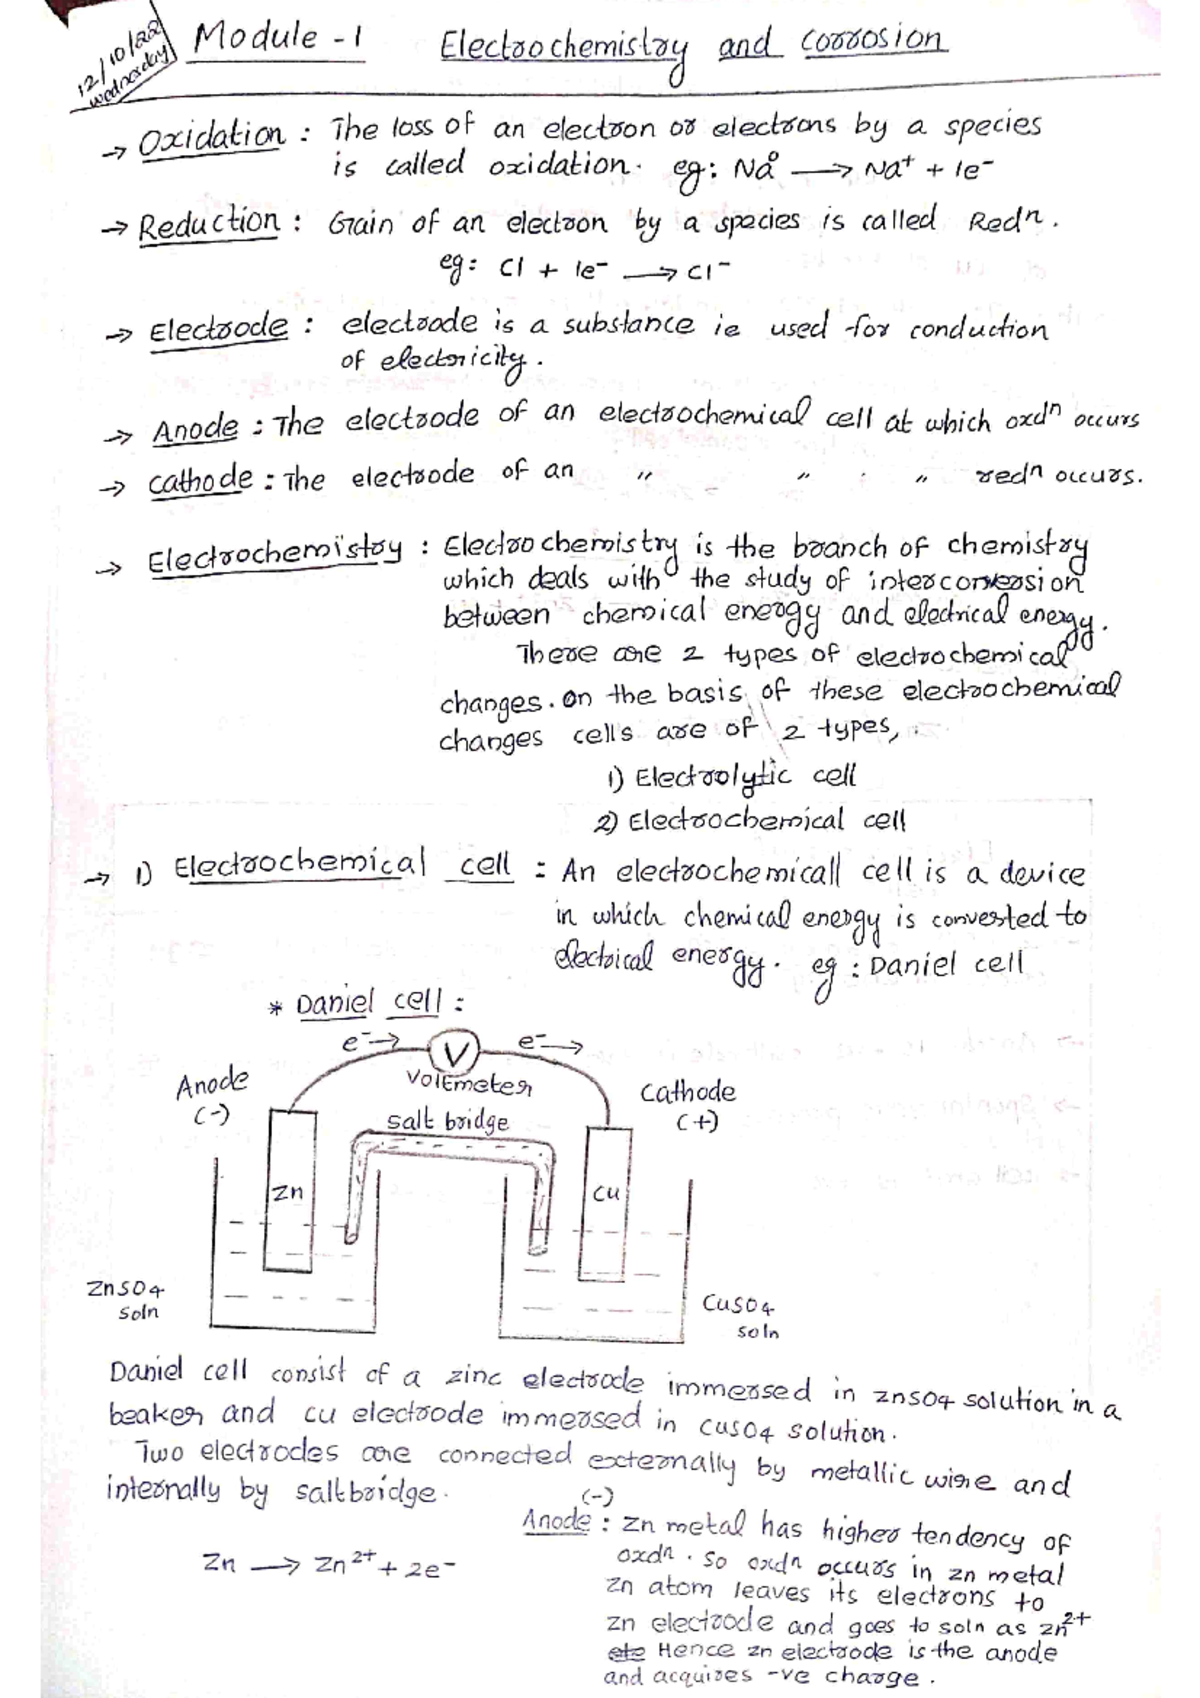 12/10/22
Wednesday
Module - 1 Electrochemistry and Corrosion
→ Oxidation : The loss of an electron or electrons by a species
is called oxidation. eg: Na⁰ ⟶ Na⁺ + 1e⁻
→ Reduction : Grain of an electron by a species is called Redⁿ.
eg: Cl + 1e⁻ ⟶ Cl⁻
→ Electrode : electrode is a substance ie used for conduction
of electricity.
→ Anode : The electrode of an electrochemical cell at which oxdⁿ occurs
→ cathode : The electrode of an " " " redⁿ occurs.
→ Electrochemistry : Electrochemistry is the branch of chemistry
which deals with the study of interconversion
between chemical energy and electrical energy.
There are 2 types of electrochemical
changes. On the basis of these electrochemical
changes cells are of 2 types,
1) Electrolytic cell
2) Electrochemical cell
→ 1) Electrochemical cell : An electrochemicall cell is a device
in which chemical energy is converted to
electrical energy. eg : Daniel cell
* Daniel cell :
e⁻→ V e⁻→
Anode (-)
Voltmeter
Cathode (+)
salt bridge
Zn
Cu
ZnSO4 soln
CuSO4 soln
Daniel cell consist of a zinc electrode immersed in ZnSO4 solution in a
beaker and cu electrode immersed in CuSO4 solution.
Two electrodes are connected externally by metallic wire and
internally by saltbridge.
(-)
Anode : Zn metal has higher tendency of
oxdⁿ. So oxdⁿ occurs in zn metal
Zn ⟶ Zn²⁺ + 2e⁻
Zn atom leaves its electrons to
Zn electrode and goes to soln as Zn²⁺
Hence zn electrode is the anode
and acquires -ve charge.